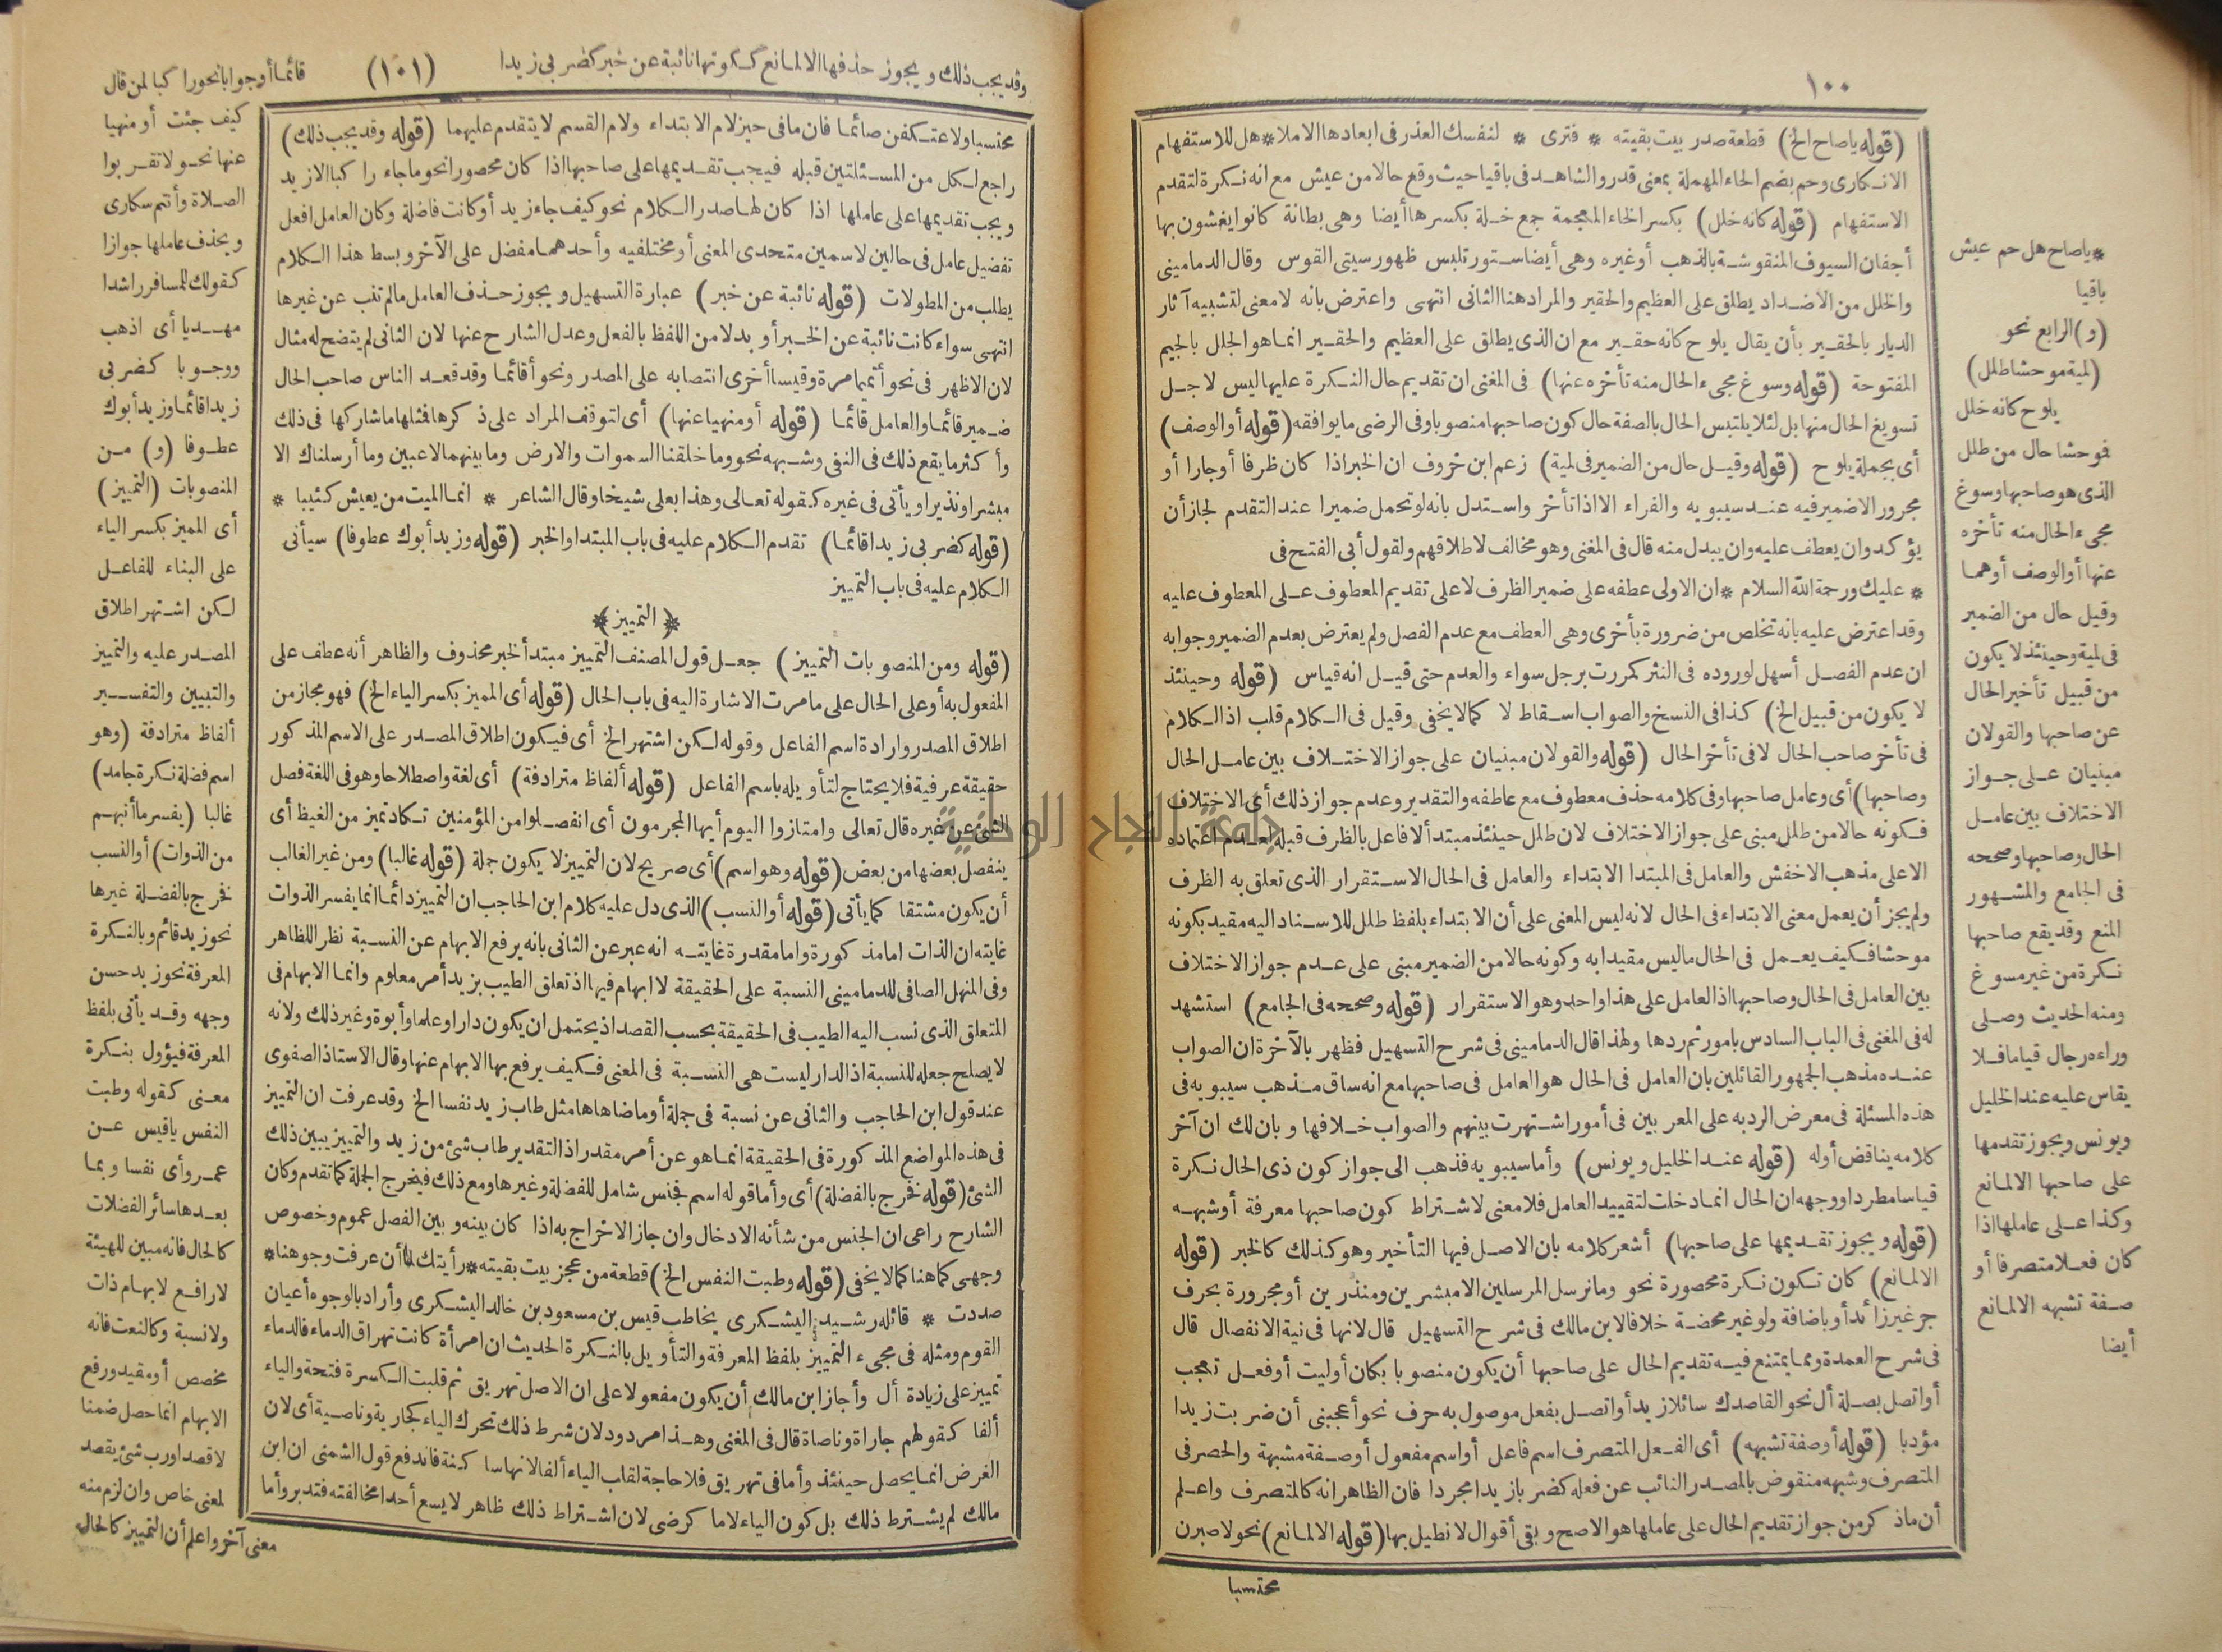 ١٠٠
(قوله يا صاح الخ) قطعة صدر بيت بقيته * فترى * لنفسك العذر فى ابعادها الاملا * هل للاستفهام
الانكارى وحم بضم الحاء المهملة بمعنى قدر والشاهد فى باقيا حيث وقع حالا من عيش مع انه نكرة لتقدم
الاستفهام (قوله كانه خلل) بكسر الخاء المعجمة جمع خلة بكسرها أيضا وهى بطانة كانوا يغشون بها
أجفان السيوف المنقوشة بالذهب أو غيره وهى أيضا ستور تلبس ظهور سيتى القوس وقال الدمامينى
والخلل من الاضداد يطلق على العظيم والحقير والمراد هنا الثانى انتهى واعترض بانه لا معنى لتشبيه آثار
الديار بالحقير بأن يقال يلوح كانه حقير مع ان الذى يطلق على العظيم والحقير انما هو الجلل بالجيم
المفتوحة (قوله وسوغ مجىء الحال منه تأخره عنها) فى المغنى ان تقديم حال النكرة عليها ليس لاجل
تسويغ الحال منها بل لئلا يلتبس الحال بالصفة حال كون صاحبها منصوبا وفى الرضى ما يوافقه (قوله أو الوصف)
أى بجملة يلوح (قوله وقيل حال من الضمير فى لمية) زعم ابن خروف ان الخبر اذا كان ظرفا أو جارا أو
مجرورا لا ضمير فيه عند سيبويه والفراء الا اذا تأخر واستدل بانه لو تحمل ضميرا عند التقدم لجاز أن
يؤكد وان يعطف عليه وان يبدل منه قال فى المغنى وهو مخالف لاطلاقهم ولقول أبى الفتح فى
* عليك ورحمة الله السلام * ان الاولى عطفه على ضمير الظرف لا على تقديم المعطوف على المعطوف عليه
وقد اعترض عليه بانه تخلص من ضرورة بأخرى وهى العطف مع عدم الفصل ولم يعترض بعدم الضمير وجوابه
ان عدم الفصل أسهل لوروده فى النثر كمررت برجل سواء والعدم حتى قيل انه قياس (قوله وحينئذ
لا يكون من قبيل الخ) كذا فى النسخ والصواب اسقاط لا كما لا يخفى وقيل فى الكلام قلب اذ الكلام
فى تأخر صاحب الحال لا فى تأخر الحال (قوله والقولان مبنيان على جواز الاختلاف بين عامل الحال
وصاحبها) أى وعامل صاحبها وفى كلامه حذف معطوف مع عاطفه والتقدير وعدم جواز ذلك أى الاختلاف
فكونه حالا من طلل مبنى على جواز الاختلاف لان طلل حينئذ مبتدأ لا فاعل بالظرف قبله لعدم اعتماده
الا على مذهب الاخفش والعامل فى المبتدا الابتداء والعامل فى الحال الاستقرار الذى تعلق به الظرف
ولم يجز أن يعمل معنى الابتداء فى الحال لانه ليس المعنى على أن الابتداء بلفظ طلل للاسناد اليه مقيد بكونه
موحشا فكيف يعمل فى الحال ما ليس مقيدا به وكونه حالا من الضمير مبنى على عدم جواز الاختلاف
بين العامل فى الحال وصاحبها اذ العامل على هذا واحد وهو الاستقرار (قوله وصححه فى الجامع) استشهد
له فى المغنى فى الباب السادس بامور ثم ردها ولهذا قال الدمامينى فى شرح التسهيل فظهر بالآخرة ان الصواب
عنده مذهب الجمهور القائلين بان العامل فى الحال هو العامل فى صاحبها مع انه ساق مذهب سيبويه فى
هذه المسئلة فى معرض الرد به على المعربين فى أمور اشتهرت بينهم والصواب خلافها وبان لك ان آخر
كلامه يناقض أوله (قوله عند الخليل ويونس) وأما سيبويه فذهب الى جواز كون ذى الحال نكرة
قياسا مطردا ووجهه ان الحال انما دخلت لتقييد العامل فلا معنى لاشتراط كون صاحبها معرفة أو شبهه
(قوله ويجوز تقديمها على صاحبها) أشعر كلامه بان الاصل فيها التأخير وهو كذلك كالخبر (قوله
الالمانع) كان تكون نكرة محصورة نحو وما نرسل المرسلين الا مبشرين ومنذرين أو مجرورة بحرف
جر غير زائد أو باضافة ولو غير محضة خلافا لابن مالك فى شرح التسهيل قال لانها فى نية الانفصال قال
فى شرح العمدة ومما يمتنع فيه تقديم الحال على صاحبها أن يكون منصوبا بكان أو ليت أو فعل تعجب
أو اتصل بصلة أل نحو القاصدك سائلا زيد أو اتصل بفعل موصول به حرف نحو أعجبنى أن ضربت زيدا
مؤدبا (قوله أو صفة تشبهه) أى الفعل المتصرف اسم فاعل أو اسم مفعول أو صفة مشبهة والحصر فى
المتصرف وشبهه منقوض بالمصدر النائب عن فعله كضربا زيدا مجردا فان الظاهر انه كالمتصرف واعلم
أن ما ذكر من جواز تقديم الحال على عاملها هو الاصح وبقى أقوال لا نطيل بها (قوله الا لمانع) نحو لاصبرن
محتسبا
* ياصاح هل حم عيش
باقيا
(و) الرابع نحو
(لمية موحشا طلل)
يلوح كانه خلل
فموحشا حال من طلل
الذى هو صاحبها وسوغ
مجىء الحال منه تأخره
عنها أو الوصف أو هما
وقيل حال من الضمير
فى لمية وحينئذ لا يكون
من قبيل تأخير الحال
عن صاحبها والقولان
مبنيان على جواز
الاختلاف بين عامل
الحال وصاحبها وصححه
فى الجامع والمشهور
المنع وقد يقع صاحبها
نكرة من غير مسوغ
ومنه الحديث وصلى
وراءه رجال قياما فلا
يقاس عليه عند الخليل
ويونس ويجوز تقدمها
على صاحبها الا لمانع
وكذا على عاملها اذا
كان فعلا متصرفا أو
صفة تشبهه الا لمانع
أيضا
وقد يجب ذلك ويجوز حذفها الا لمانع ككونها نائبة عن خبر كضربى زيدا
(١٠١)
قائما أو جوابا نحو راكبا لمن قال
محتسبا ولاعتكفن صائما فان ما فى حيز لام الابتداء ولام القسم لا يتقدم عليهما (قوله وقد يجب ذلك)
راجع لكل من المسئلتين قبله فيجب تقديمها على صاحبها اذا كان محصورا نحو ما جاء راكبا الا زيد
ويجب تقديمها على عاملها اذا كان لها صدر الكلام نحو كيف جاء زيد أو كانت فاضلة وكان العامل افعل
تفضيل عامل فى حالين لاسمين متحدى المعنى أو مختلفيه وأحدهما مفضل على الآخر وبسط هذا الكلام
يطلب من المطولات (قوله نائبة عن خبر) عبارة التسهيل ويجوز حذف العامل مالم تنب عن غيرها
انتهى سواء كانت نائبة عن الخبر أو بدلا من اللفظ بالفعل وعدل الشارح عنها لان الثانى لم يتضح له مثال
لان الاظهر فى نحو أتميما مرة وقيسا أخرى انتصابه على المصدر ونحو أقائما وقد قعد الناس صاحب الحال
ضمير قائما والعامل قائما (قوله أو منهيا عنها) أى لتوقف المراد على ذكرها فمثلها ما شاركها فى ذلك
وأكثر ما يقع ذلك فى النفى وشبهه نحو وما خلقنا السموات والارض وما بينهما لاعبين وما أرسلناك الا
مبشرا ونذيرا ويأتى فى غيره كقوله تعالى وهذا بعلى شيخا وقال الشاعر * انما الميت من يعيش كئيبا *
(قوله كضربى زيدا قائما) تقدم الكلام عليه فى باب المبتدا والخبر (قوله وزيد أبوك عطوفا) سيأتى
الكلام عليه فى باب التمييز
﴿ التمييز ﴾
(قوله ومن المنصوبات التمييز) جعل قول المصنف التمييز مبتدأ لخبر محذوف والظاهر أنه عطف على
المفعول به أو على الحال على ما مرت الاشارة اليه فى باب الحال (قوله أى المميز بكسر الياء الخ) فهو مجاز من
اطلاق المصدر وارادة اسم الفاعل وقوله لكن اشتهر الخ أى فيكون اطلاق المصدر على الاسم المذكور
حقيقة عرفية فلا يحتاج لتأويله باسم الفاعل (قوله ألفاظ مترادفة) أى لغة واصطلاحا وهو فى اللغة فصل
الشئ عن غيره قال تعالى وامتازوا اليوم أيها المجرمون أى انفصلوا من المؤمنين تكاد تميز من الغيظ أى
ينفصل بعضها من بعض (قوله وهو اسم) أى صريح لان التمييز لا يكون جملة (قوله غالبا) ومن غير الغالب
أن يكون مشتقا كما يأتى (قوله أو النسب) الذى دل عليه كلام ابن الحاجب ان التمييز دائما انما يفسر الذوات
غايته ان الذات اما مذكورة واما مقدرة غايته انه عبر عن الثانى بانه يرفع الابهام عن النسبة نظر اللظاهر
وفى المنهل الصافى للدمامينى النسبة على الحقيقة لا ابهام فيها اذ تعلق الطيب بزيد أمر معلوم وانما الابهام فى
المتعلق الذى نسب اليه الطيب فى الحقيقة بحسب القصد اذ يحتمل ان يكون دارا وعلما وأبوة وغير ذلك ولانه
لا يصلح جعله للنسبة اذ الدار ليست هى النسبة فى المعنى فكيف يرفع بها الابهام عنها وقال الاستاذ الصفوى
عند قول ابن الحاجب والثانى عن نسبة فى جملة أو ما ضاهاها مثل طاب زيد نفسا الخ وقد عرفت ان التمييز
فى هذه المواضع المذكورة فى الحقيقة انما هو عن أمر مقدر اذ التقدير طاب شئ من زيد والتمييز يبين ذلك
الشئ (قوله فخرج بالفضلة) أى وأما قوله اسم فجنس شامل للفضلة وغيرها ومع ذلك فيخرج الجملة كما تقدم وكان
الشارح راعى ان الجنس من شأنه الادخال وان جاز الاخراج به اذا كان بينه وبين الفصل عموم وخصوص
وجهى كما هنا كما لا يخفى (قوله وطبت النفس الخ) قطعة من عجز بيت بقيته * رأيتك لما أن عرفت وجوهنا *
صددت * قائله رشيد اليشكرى يخاطب قيس بن مسعود بن خالد اليشكرى وأراد بالوجوه أعيان
القوم ومثله فى مجىء التمييز بلفظ المعرفة والتأويل بالنكرة الحديث ان امرأة كانت تهراق الدماء فالدماء
تمييز على زيادة أل وأجاز ابن مالك أن يكون مفعولا على ان الاصل تهريق ثم قلبت الكسرة فتحة والياء
ألفا كقولهم جاراة وناصاة قال فى المغنى وهذا مردود لان شرط ذلك تحرك الياء كجارية وناصية أى لان
الغرض انما يحصل حينئذ وأما فى تهريق فلا حاجة لقلب الياء ألفا لانها ساكنة فاندفع قول الشمنى ان ابن
مالك لم يشترط ذلك بل كون الياء لاما كرضى لان اشتراط ذلك ظاهر لا يسع أحدا مخالفته فتدبر وأما
كيف جئت أو منهيا
عنها نحو لا تقربوا
الصلاة وأنتم سكارى
ويحذف عاملها جوازا
كقولك للمسافر راشدا
مهديا أى اذهب
ووجوبا كضربى
زيدا قائما وزيد أبوك
عطوفا (و) من
المنصوبات (التمييز)
أى المميز بكسر الياء
على البناء للفاعل
لكن اشتهر اطلاق
المصدر عليه والتمييز
والتبيين والتفسير
ألفاظ مترادفة (وهو
اسم فضلة نكرة جامد)
غالبا (يفسر ما أنبهم
من الذوات) أو النسب
فخرج بالفضلة غيرها
نحو زيد قائم وبالنكرة
المعرفة نحو زيد حسن
وجهه وقد يأتى بلفظ
المعرفة فيؤول بنكرة
معنى كقوله وطبت
النفس ياقيس عن
عمرو أى نفسا وبما
بعدها سائر الفضلات
كالحال فانه مبين للهيئة
لا رافع لابهام ذات
ولا نسبة وكالنعت فانه
مخصص أو مقيد ورفع
الابهام انما حصل ضمنا
لا قصدا ورب شئ يقصد
لمعنى خاص وان لزم منه
معنى آخر واعلم أن التمييز كالحال
جامعة النجاح الوطنية